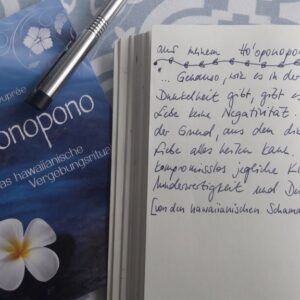 uprée
onopono
as hawaiianische
Vergebungsritua
aus meinem Ho'oponopon
... Genauso, wie es in der
Dunkelheit gibt, gibt es
Liebe keine Negativität.
der Grund, aus dem die
Liebe alles heilen kann.
kompromisslos jegliche
Minderwertigkeit und
[von den hawaiianischen Schama